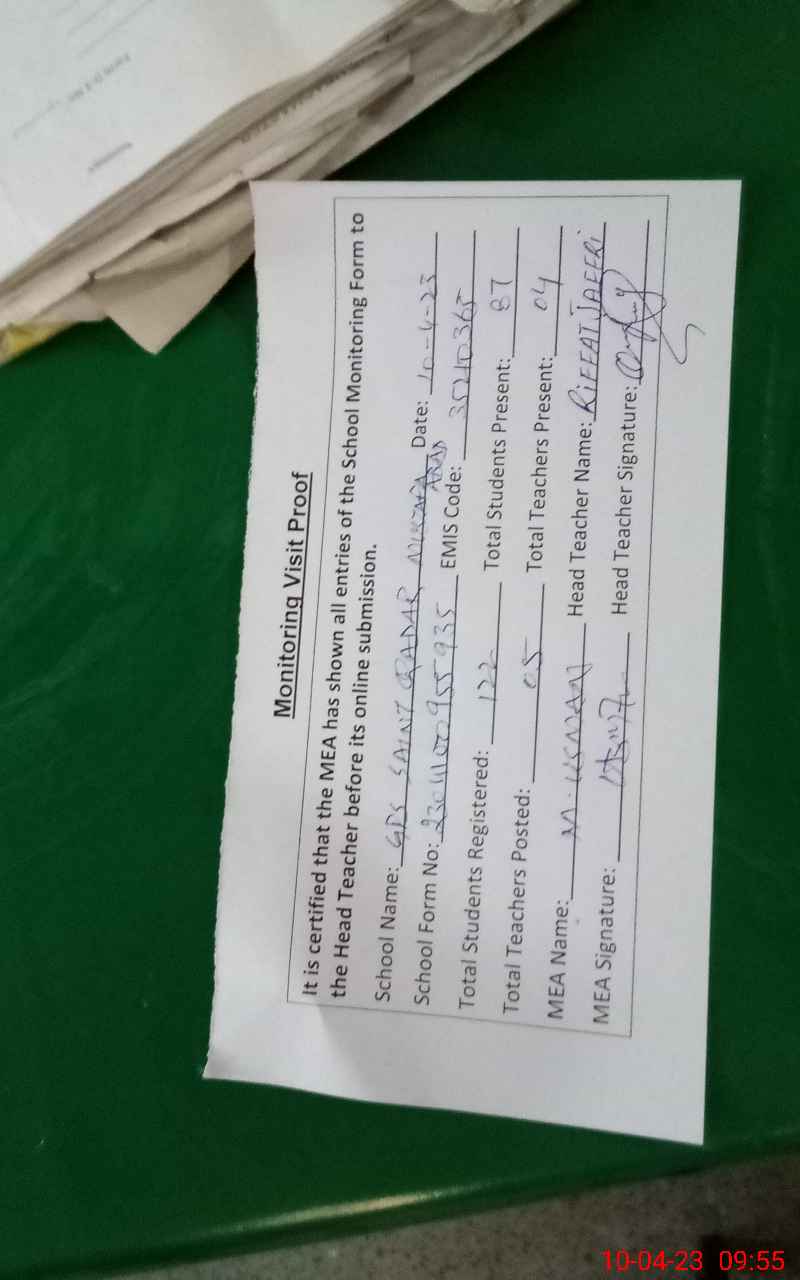 Monitoring Visit Proof
It is certified that the MEA has shown all entries of the School Monitoring Form to
the Head Teacher before its online submission.
School Name: GPS SAINT QADAR MUSTAFA ABAD Date: 10-4-23
School Form No: 23041100955935 EMIS Code: 35210365
Total Students Registered: 122 Total Students Present: 87
Total Teachers Posted: 05 Total Teachers Present: 04
MEA Name: M. USMAN Head Teacher Name: RIFFAT JAFFRI
MEA Signature: Head Teacher Signature:
10-04-23 09:55